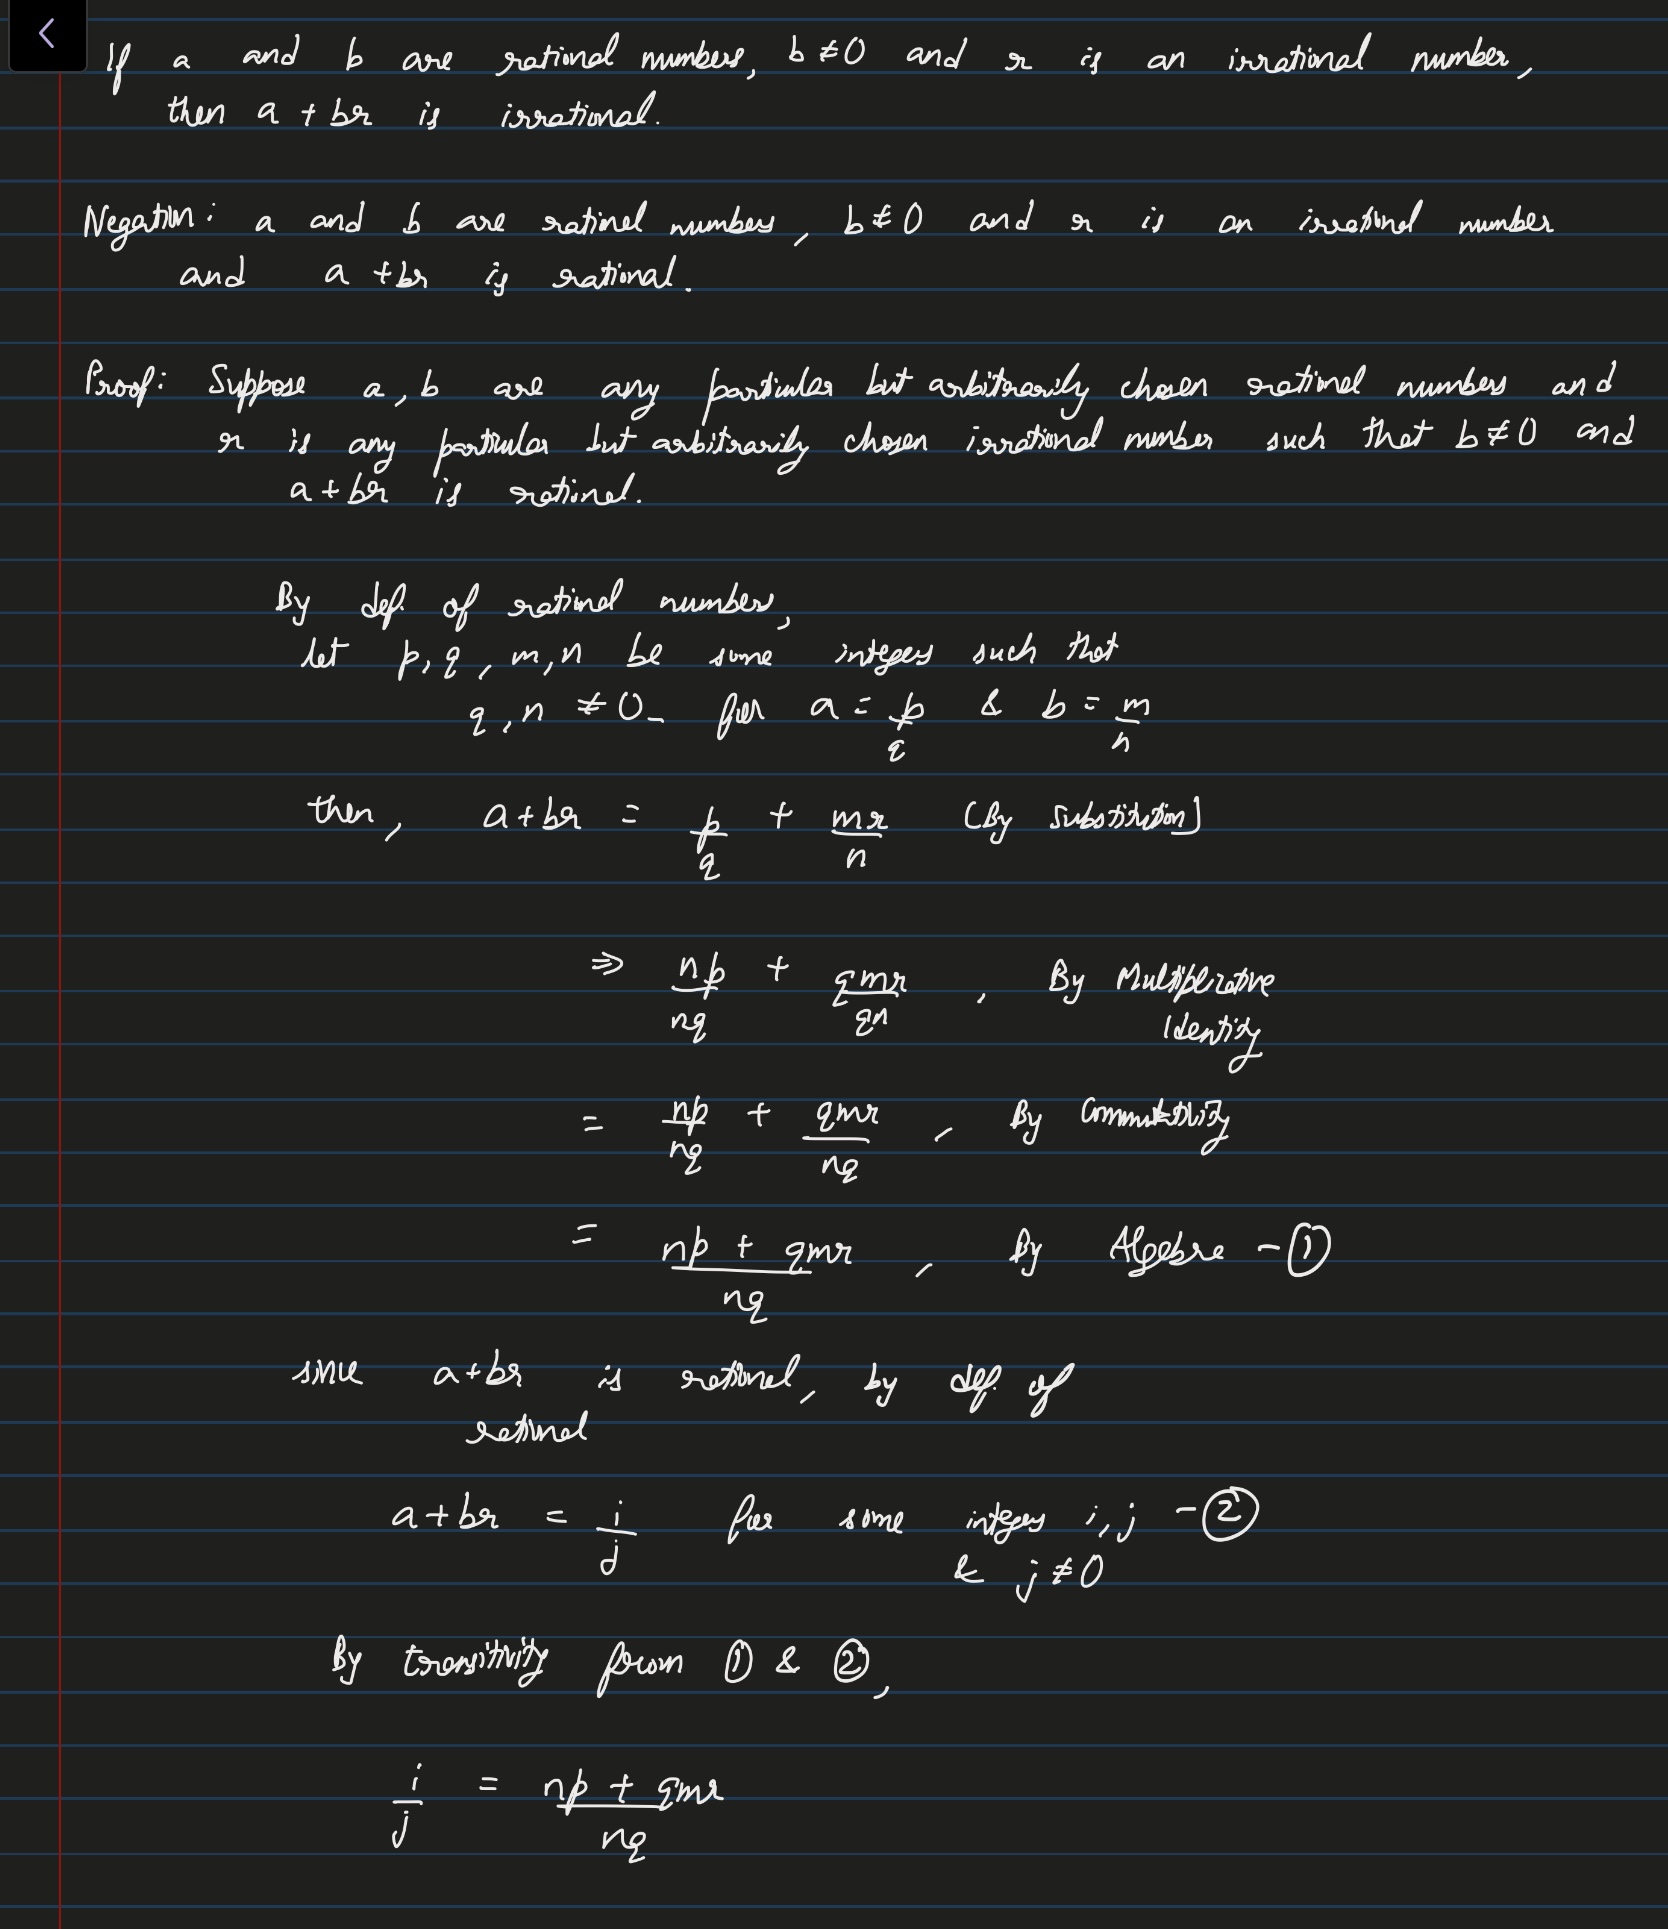 If a and b are rational numbers, b ≠ 0 and r is an irrational number,
then a + br is irrational.
Negation: a and b are rational numbers, b ≠ 0 and r is an irrational number
and a + br is rational.
Proof: Suppose a, b are any particular but arbitrarily chosen rational numbers and
r is any particular but arbitrarily chosen irrational number such that b ≠ 0 and
a + br is rational.
By def. of rational numbers,
let p, q, m, n be some integers such that
q, n ≠ 0. for a = p/q & b = m/n
then, a + br = p/q + mr/n (By substitution)
⇒ np/nq + qmr/qn, By Multiplicative
Identity
= np/nq + qmr/nq, By Commutativity
= (np + qmr)/nq, By Algebra - ①
since a + br is rational, by def. of
rational
a + br = i/j for some integers i, j - ②
& j ≠ 0
By transitivity from ① & ②,
i/j = (np + qmr)/nq